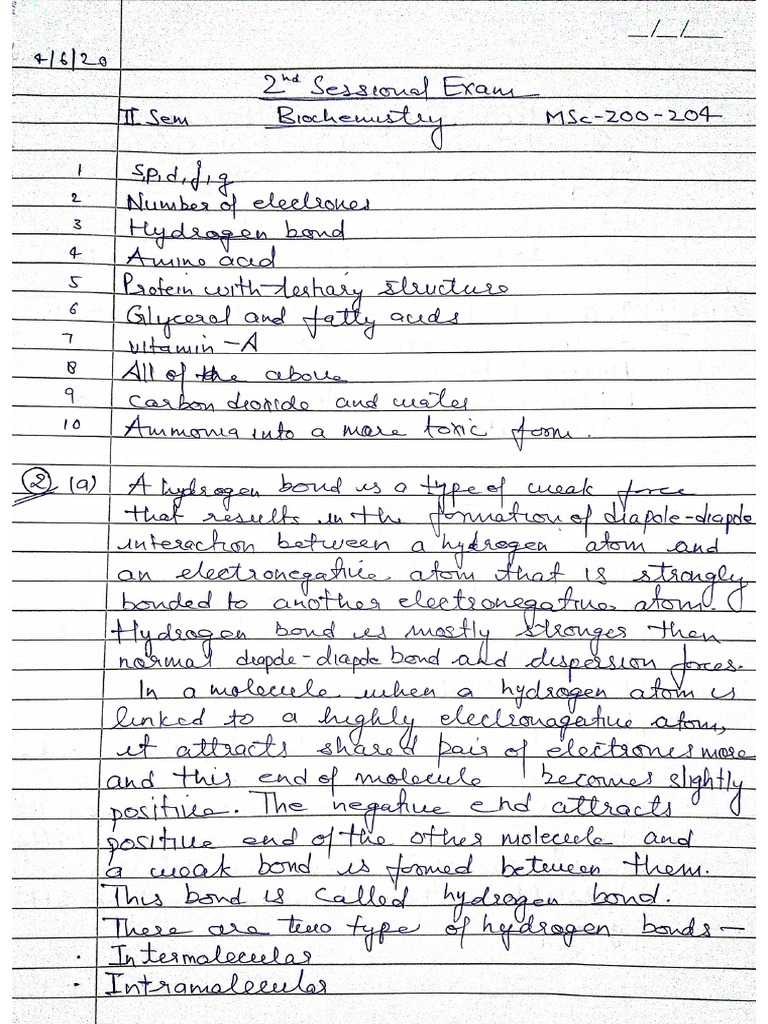 _/_/__
4/6/20
2nd Sessional Exam
II Sem Biochemistry MSc-200-204
1 S,P,d,f,g
2 Number of electrones
3 Hydrogen bond
4 Amino acid
5 Protein with tertiary structure
6 Glycerol and fatty acids
7 vitamin-A
8 All of the above
9 Carbon dioxide and water
10 Ammonia into a more toxic form.
2 (a) A hydrogen bond is a type of weak force
that results in the formation of diapole-diapole
interaction between a hydrogen atom and
an electronegative atom that is strongly
bonded to another electronegative atom.
Hydrogen bond is mostly stronger then
normal diapole-diapole bond and dispersion forces.
In a molecule when a hydrogen atom is
linked to a highly electronagative atom,
it attracts shared pair of electrones more
and this end of molecule becomes slightly
positive. The negative end attracts
positive end of the other molecule and
a weak bond is formed between them.
This bond is called hydrogen bond.
There are two type of hydrogen bonds-
· Intermolecular
· Intramolecular